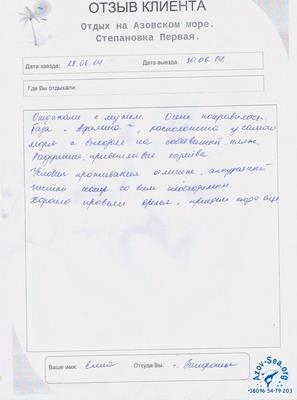 ОТЗЫВ КЛИЕНТА
Отдых на Азовском море.
Степановка Первая.
Дата заезда: 28.06.14
Дата выезда: 30.06.14.
Где Вы отдыхали:
Отдыхали с мужем. Очень понравилось,
база расположена у самого
моря с выходом на собственный пляж.
Радушные, приветливые хозяева.
Условия проживания отличные, аккуратный
чистый со всем необходимым.
Хорошо провели время, приедем сюда еще
Ваше имя:
Откуда Вы: г.
Azov-Sea.org
+38096-54-79-203